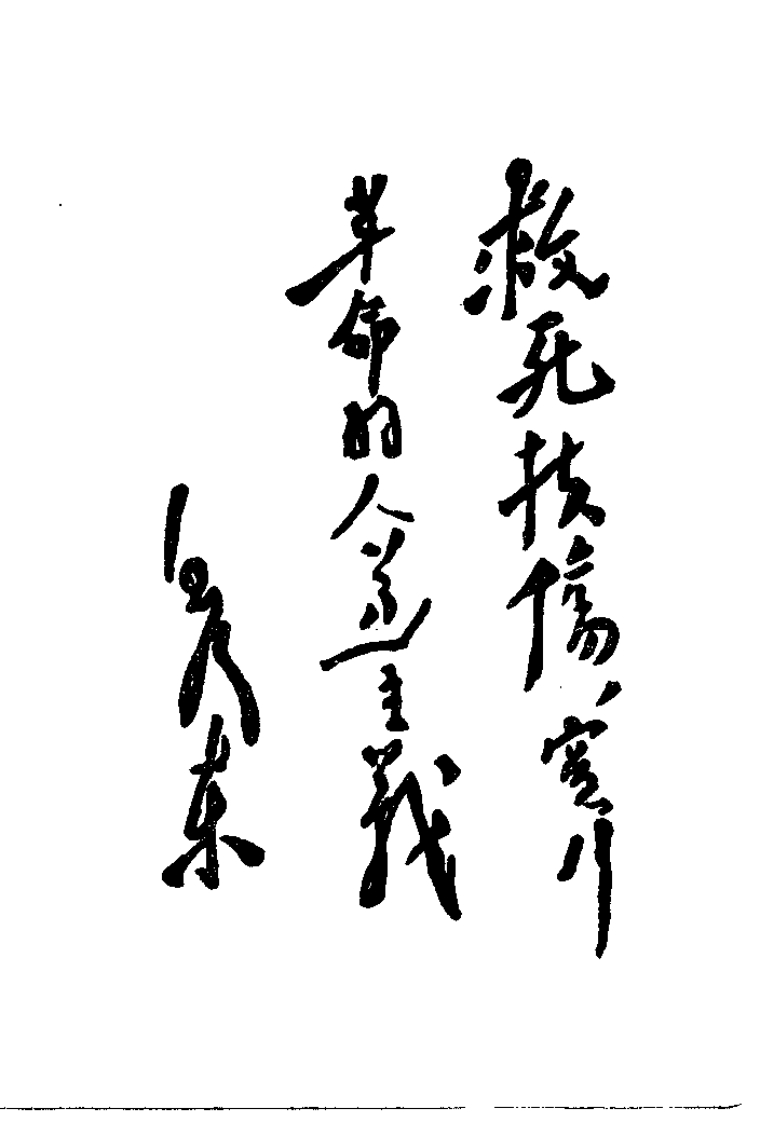 救死扶傷,實行
革命的人道主義
毛澤東